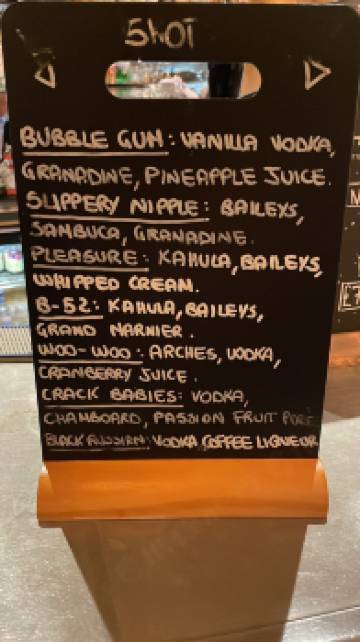 SHOT
BUBBLE GUM: VANILLA VODKA,
GRANADINE, PINEAPPLE JUICE.
SLIPPERY NIPPLE: BAILEYS,
SAMBUCA, GRANADINE.
PLEASURE: KAHULA, BAILEYS,
WHIPPED CREAM.
B-52: KAHULA, BAILEYS,
GRAND MARNIER.
WOO-WOO: ARCHES, VODKA,
CRANBERRY JUICE.
CRACK BABIES: VODKA,
CHAMBOARD, PASSION FRUIT
BLACK RUSSIAN: VODKA, COFFEE LIQUEUR